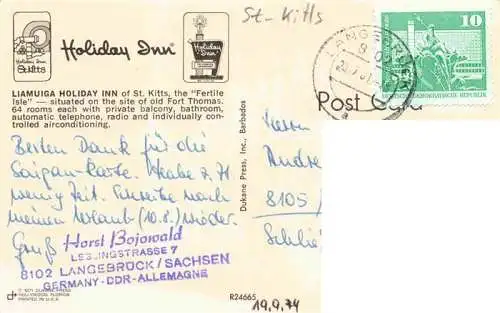 St-Kitts
Holiday Inn
Holiday Inn
St Kitts
Holiday Inn
10
DEUTSCHE DEMOKRATISCHE REPUBLIK
LIAMUIGA HOLIDAY INN of St. Kitts, the "Fertile
Isle" — situated on the site of old Fort Thomas.
64 rooms each with private balcony, bathroom,
automatic telephone, radio and individually con-
trolled airconditioning.
Post Card
Besten Dank für die
Saigan-Karte. Habe z. Zt
wenig Zeit. Schreibe nach
meinem Urlaub (10.8.) wieder.
Gruß
Horst Bojowald
LESSINGSTRASSE 7
8102 LANGEBRÜCK/SACHSEN
GERMANY-DDR-ALLEMAGNE
Dukane Press, Inc., Barbados
Herrn
Andre
8105
HOLLYWOOD, FLORIDA
PRINTED IN U.S.A.
R24665
19.9.74